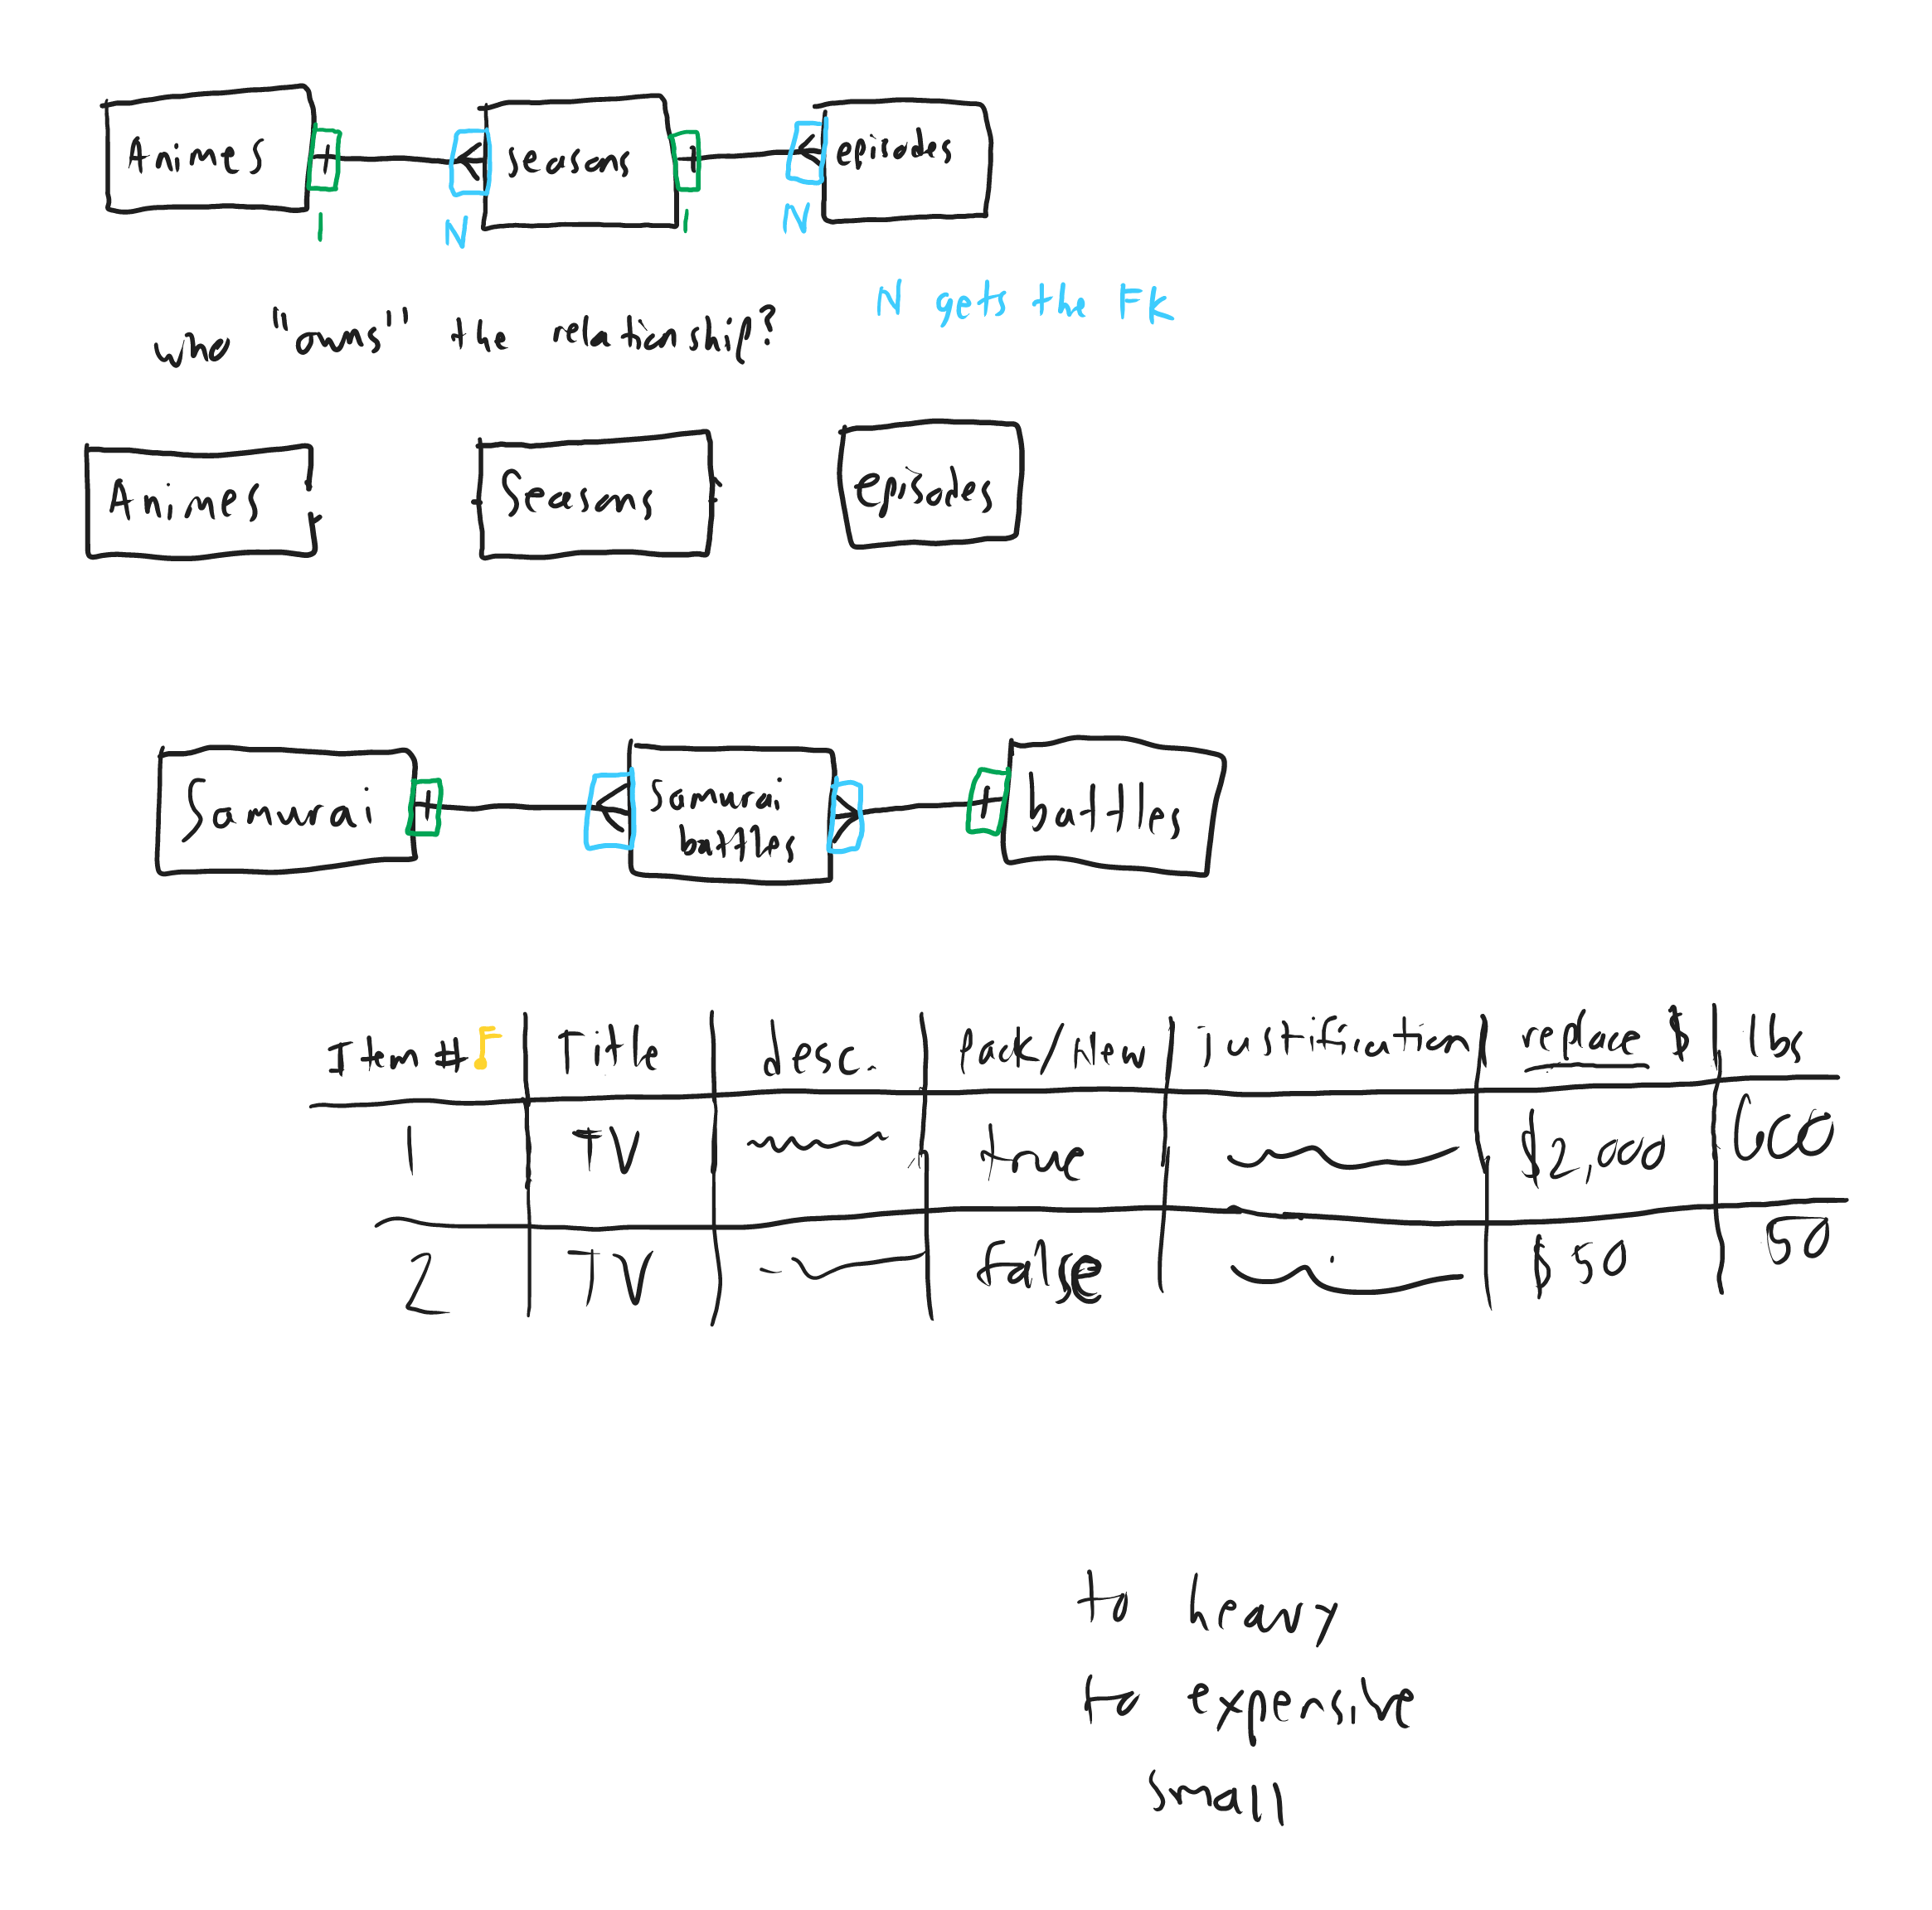 Animes seasons episodes
1 N 1 N
N gets the FK
who "owns" the relationship?
Animes Seasons episodes
Samurai Samurai battles battles
Item # Title desc. Pack/New justification replace $ lbs
1 TV true $2,000
2 TV false $50 50
to heavy
to expensive
small